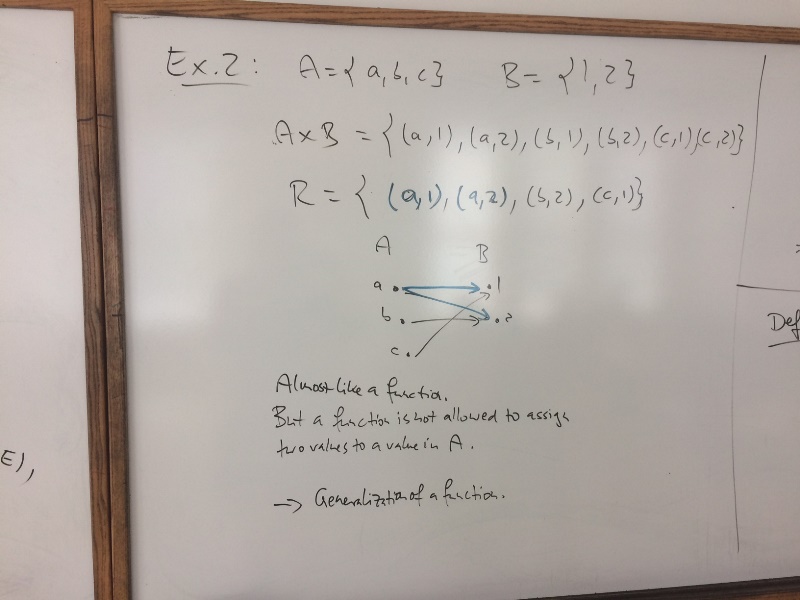 Ex.2: A={a,b,c} B={1,2}
A×B = {(a,1),(a,2),(b,1),(b,2),(c,1)(c,2)}
R = { (a,1),(a,2),(b,2),(c,1)}
A B
a 1
b 2
c
Almost like a function.
But a function is not allowed to assign
two values to a value in A.
→ Generalization of a function.
E),
Def